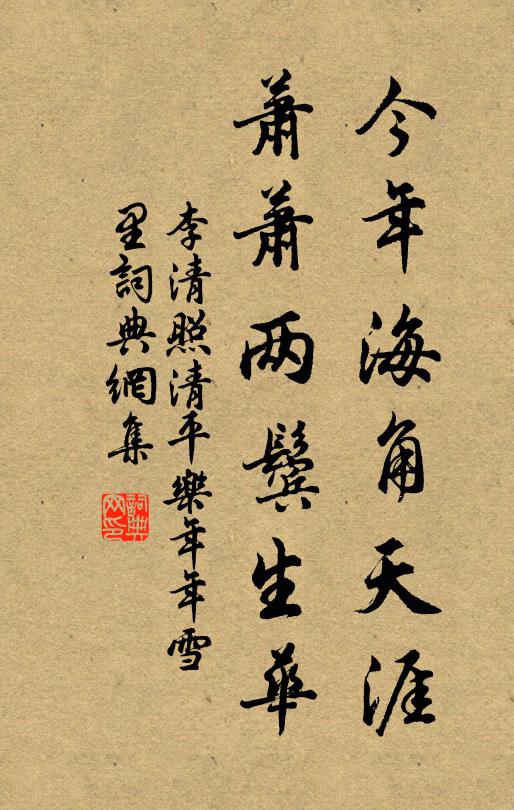 今年海角天涯
蕭蕭两鬓生華
李清照清平樂年年雪
里詞典網集
詞典
网印